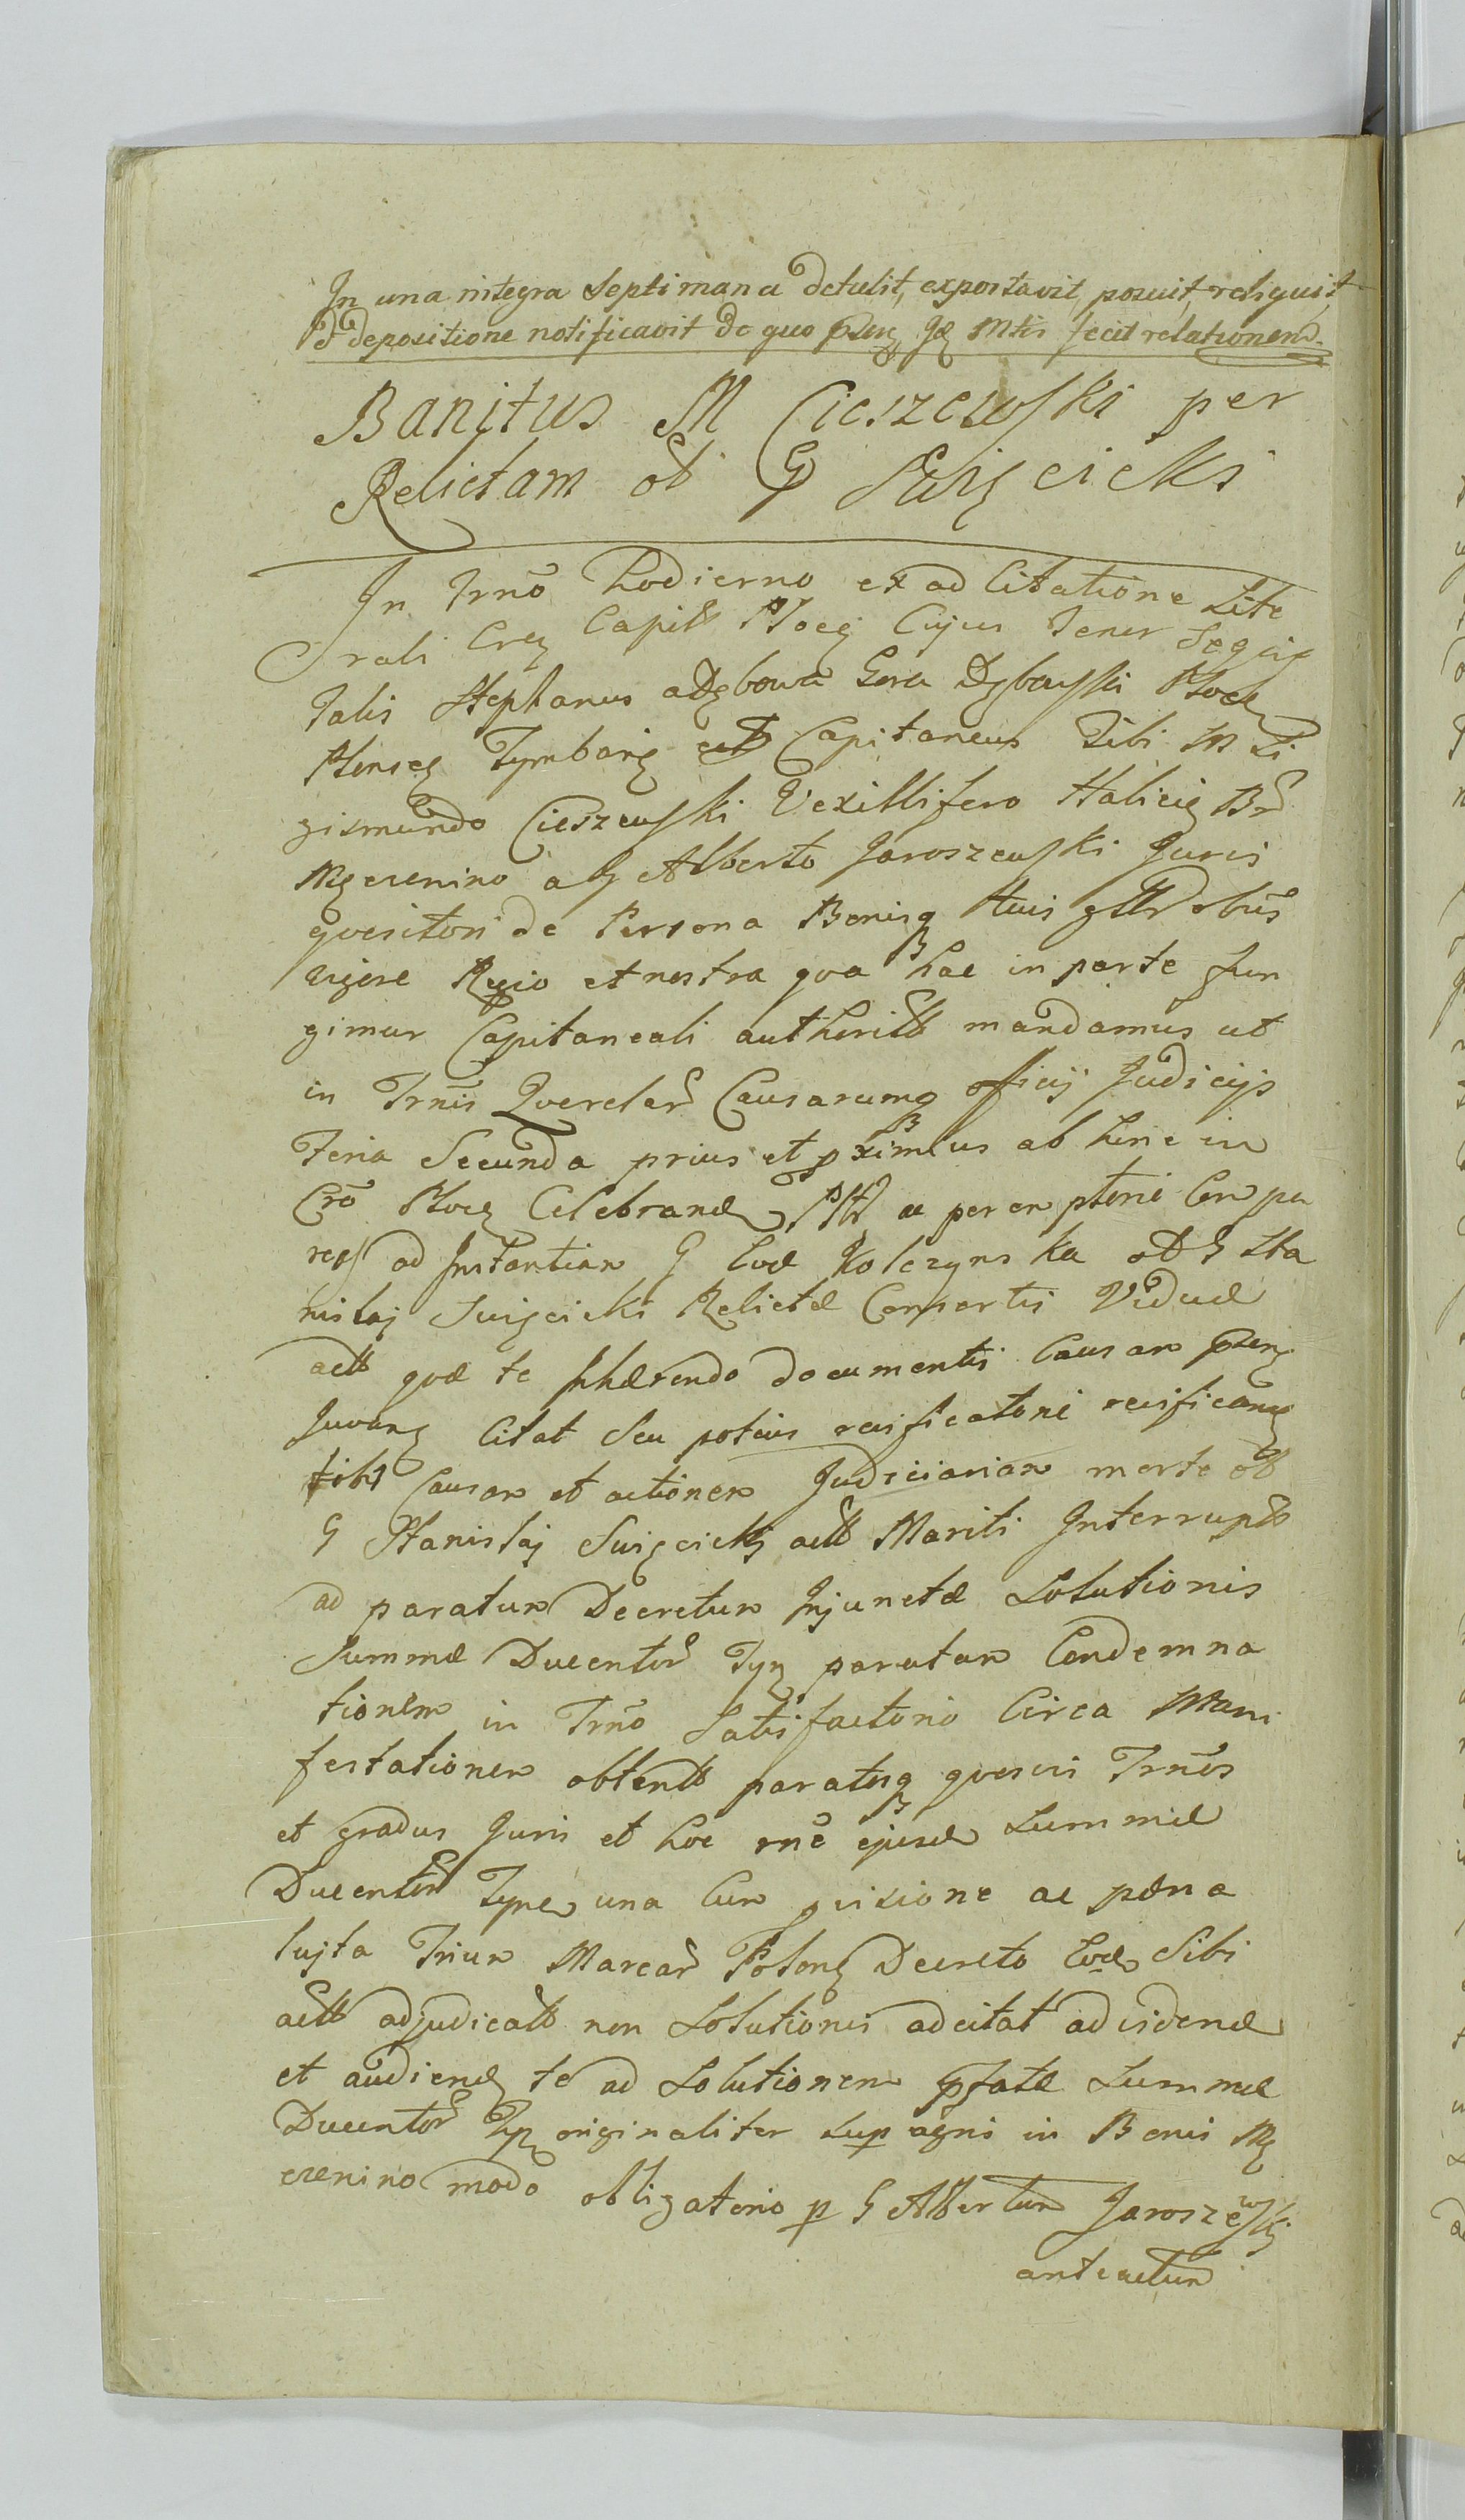 In una integra Septimana detulit, exportavit, posuit, reliquit
d depositione notificavit de quo psens Jæ Mtis fecit relationem.
Banitus M Cieszewski per
Relictam ol G Swięcicki
In Trno hodierno ex ad Citatione Lite
rali Crę Capit Plocę Cujus Tenor Seqtis
Talis Stephanus a Dębowa Gora Dębowski Plocę
Plonscę Capitaneus Tibi M Si
gismundo Cieszewski Vexillifero Halicię
a G Alberto Jaroszewski Juris
quesitori de Persona Bonisq Tuis gtter obus
vigore Regio et nostra qva hac in parte fun
gimur Capitaneali authoritt mandamus ut
in Trnis Querelar Causarumq officij Judicijs
Feria Secunda prius et pximius ab hinc in
Cro Plocę Celebrand ac peremptorie Compa
reas ad Instantiam G Evæ Kolczynska ol G Sta
nislaj Swięcicki Relictæ Consortis Viduæ
actt quæ te Inhærendo documentis Causam psen
Juvanę Citat Seu potius
tibi Causam et actionem Judiciariam morte ol
G Stanislaj Swięcickj actt Mariti Interrupt
ad paratum Decretum Injunctæ Solutionis
Summæ Ducentor Tyn paratam Condemna
tionem in Trno Satisfactorio Circa Mani
festationem obtentt paratosq quosvis Trnos
et gradus Juris et hoc rne ejusd Summæ
Ducentor Tynf una Cum pvisione ac pæna
lujta Trium Marcar Polonę Decreto Sibi
actt adjudicatt non Solutionis adcitat ad vidend
et audiend te ad Solutionem pfatæ Summæ
Ducentor originaliter Sup agris in Bonis
modo obligatorio p G Albertum Jaroszewskj
anteactum